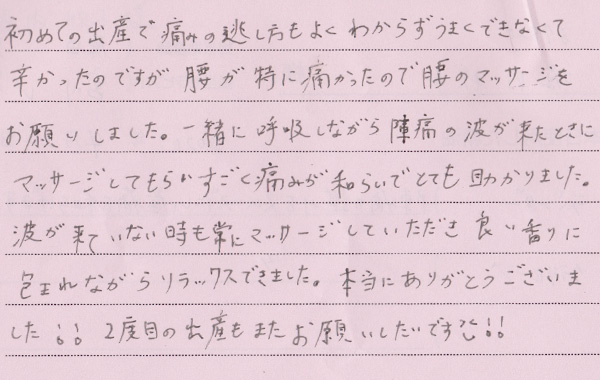 初めての出産で痛みの逃し方もよくわからずうまくできなくて
辛かったのですが腰が特に痛かったので腰のマッサージを
お願いしました。一緒に呼吸しながら陣痛の波が来たときに
マッサージしてもらいすごく痛みが和らいでとても助かりました。
波が来ていない時も常にマッサージしていただき良い香りに
包まれながらリラックスできました。本当にありがとうございま
した!! 2度目の出産もまたお願いしたいです!!